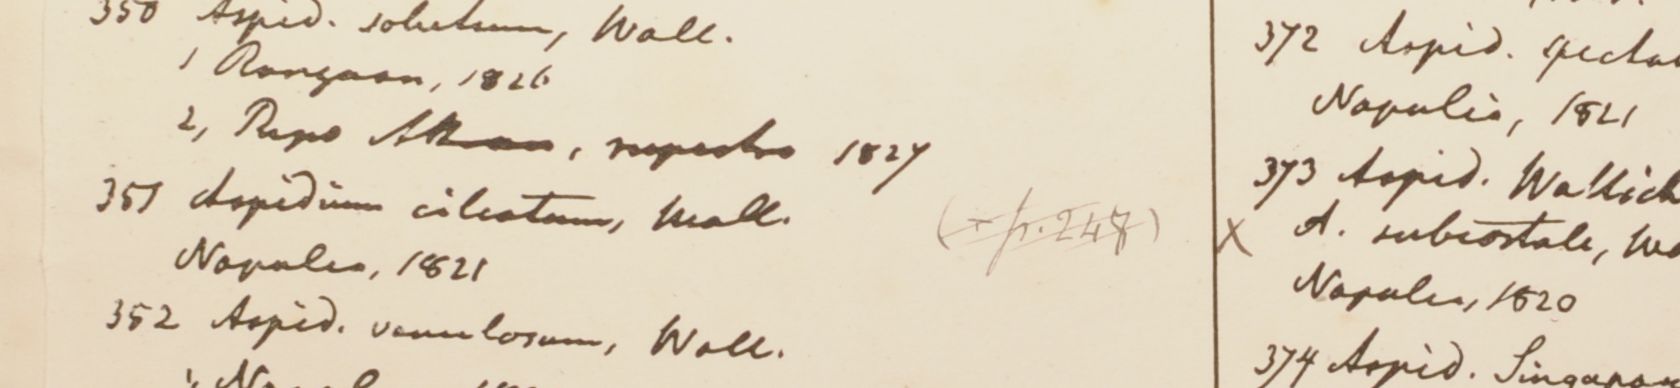 350 Aspid. solutum, Wall.
1 Rangoon, 1826
2, rupestra 1827
351 Aspidium ciliatum, Wall.
Napalia, 1821
(v. p. 247)
352 Aspid. venulosum, Wall.
372 Aspid.
Napalia, 1821
373 Aspid. Wallich
X A. subcostale, Wa
Napalia, 1820
374 Aspid. Singapo